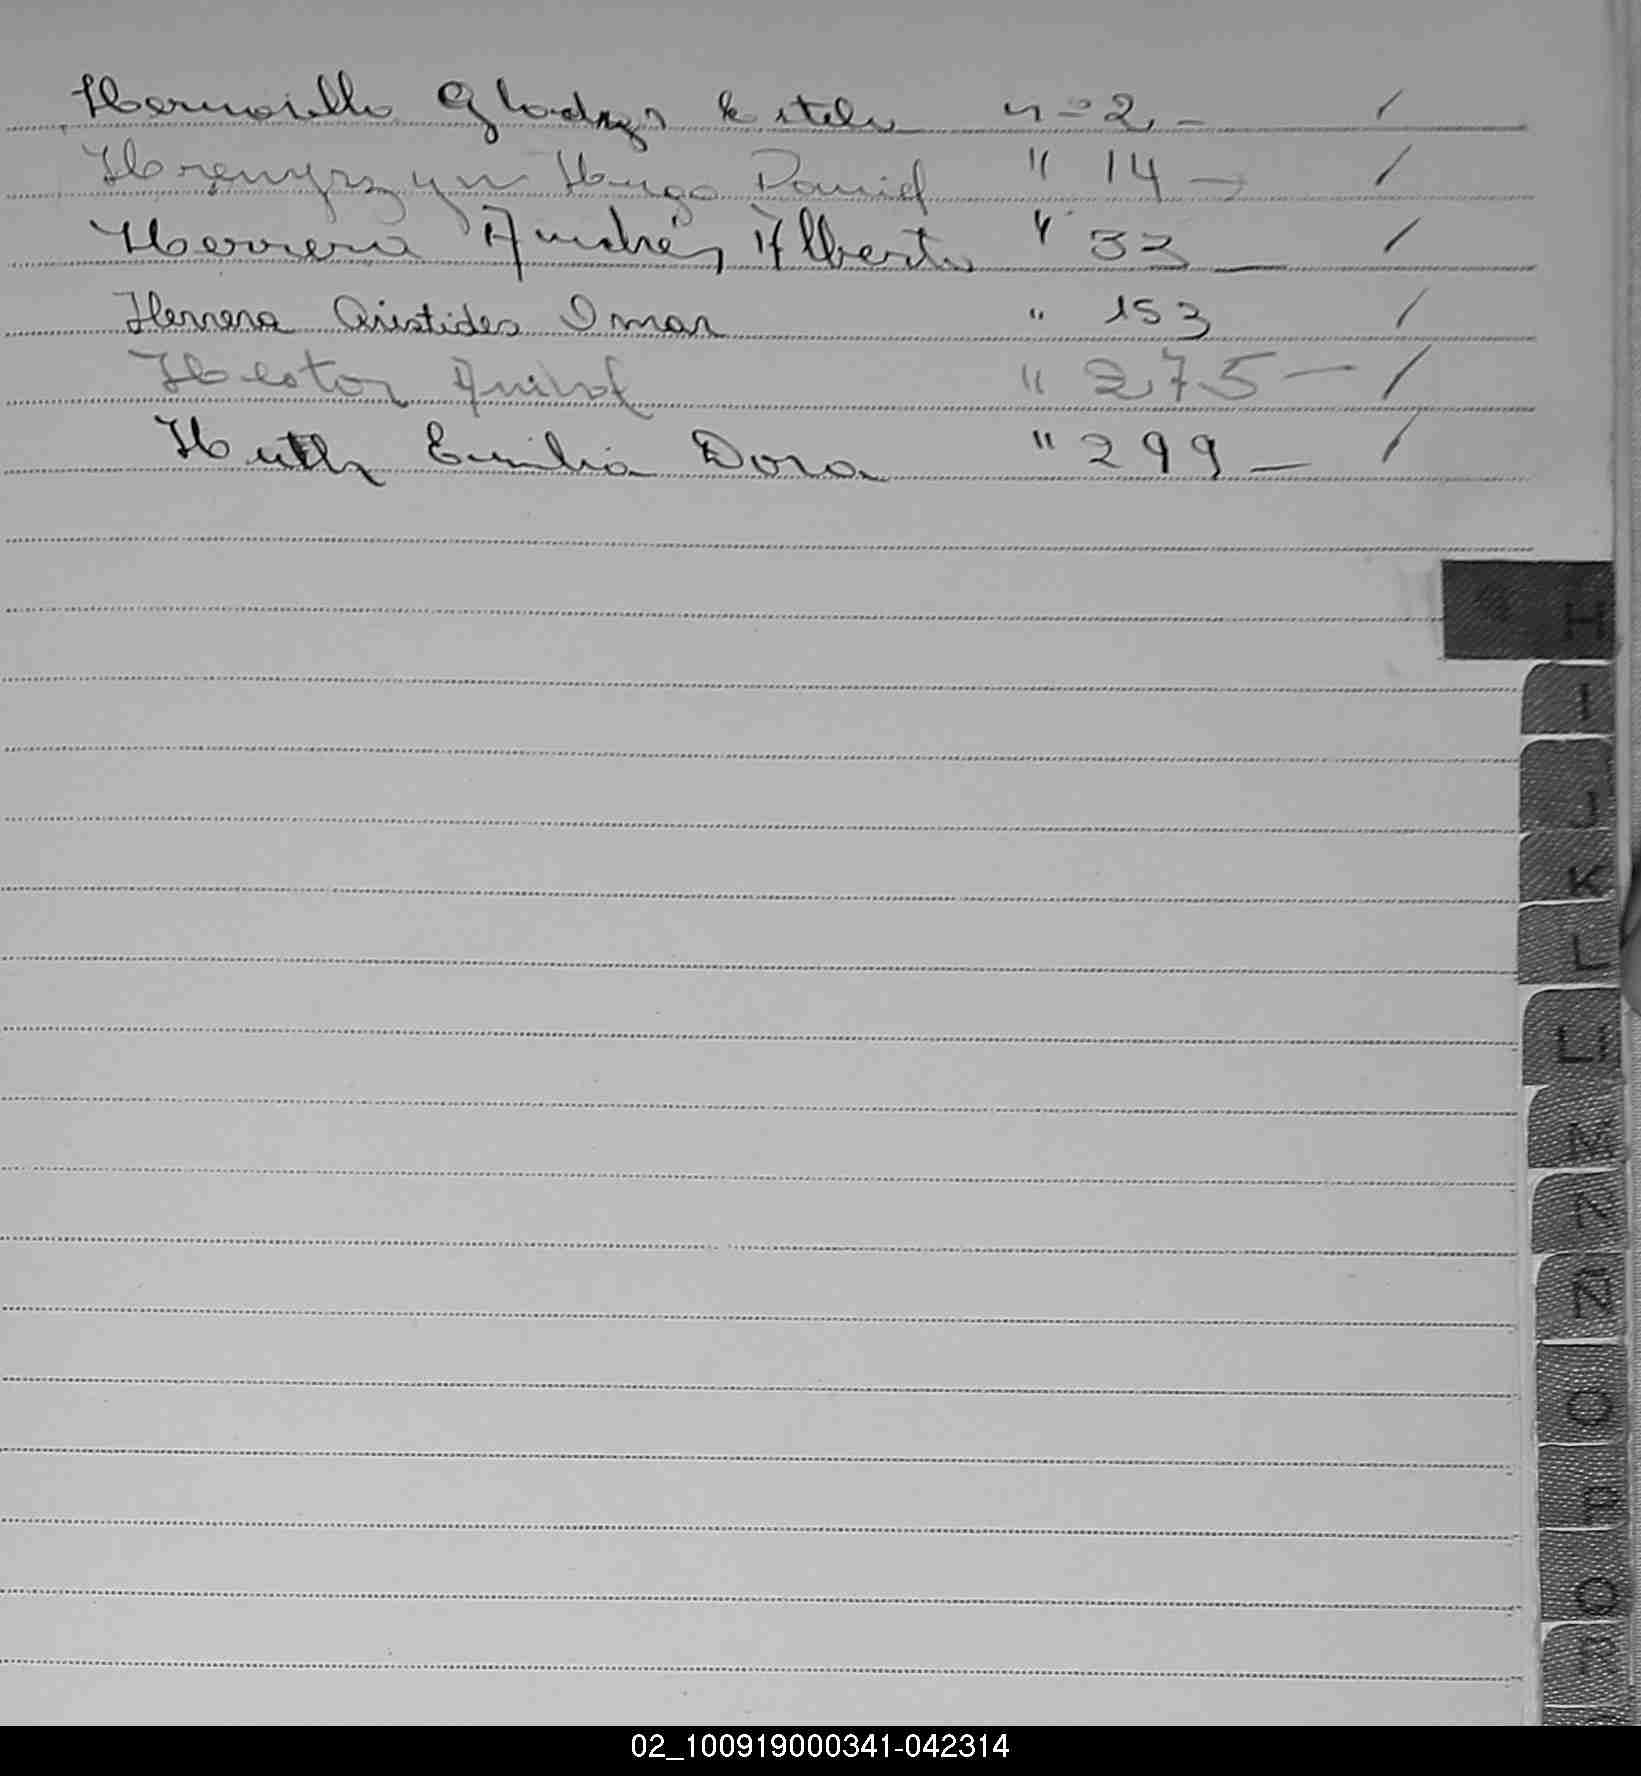 Hermosilla Gladys Estela nº 2, - /
Hugo Daniel " 14 - /
Herrera Andrés Alberto " 33 _ /
Herrera Aristides Omar " 153 /
Hector Anibal " 275 - /
Huth Emilia Dora " 299 - /
H
I
J
K
L
LL
M
N
Ñ
O
P
Q
R
02_100919000341-042314